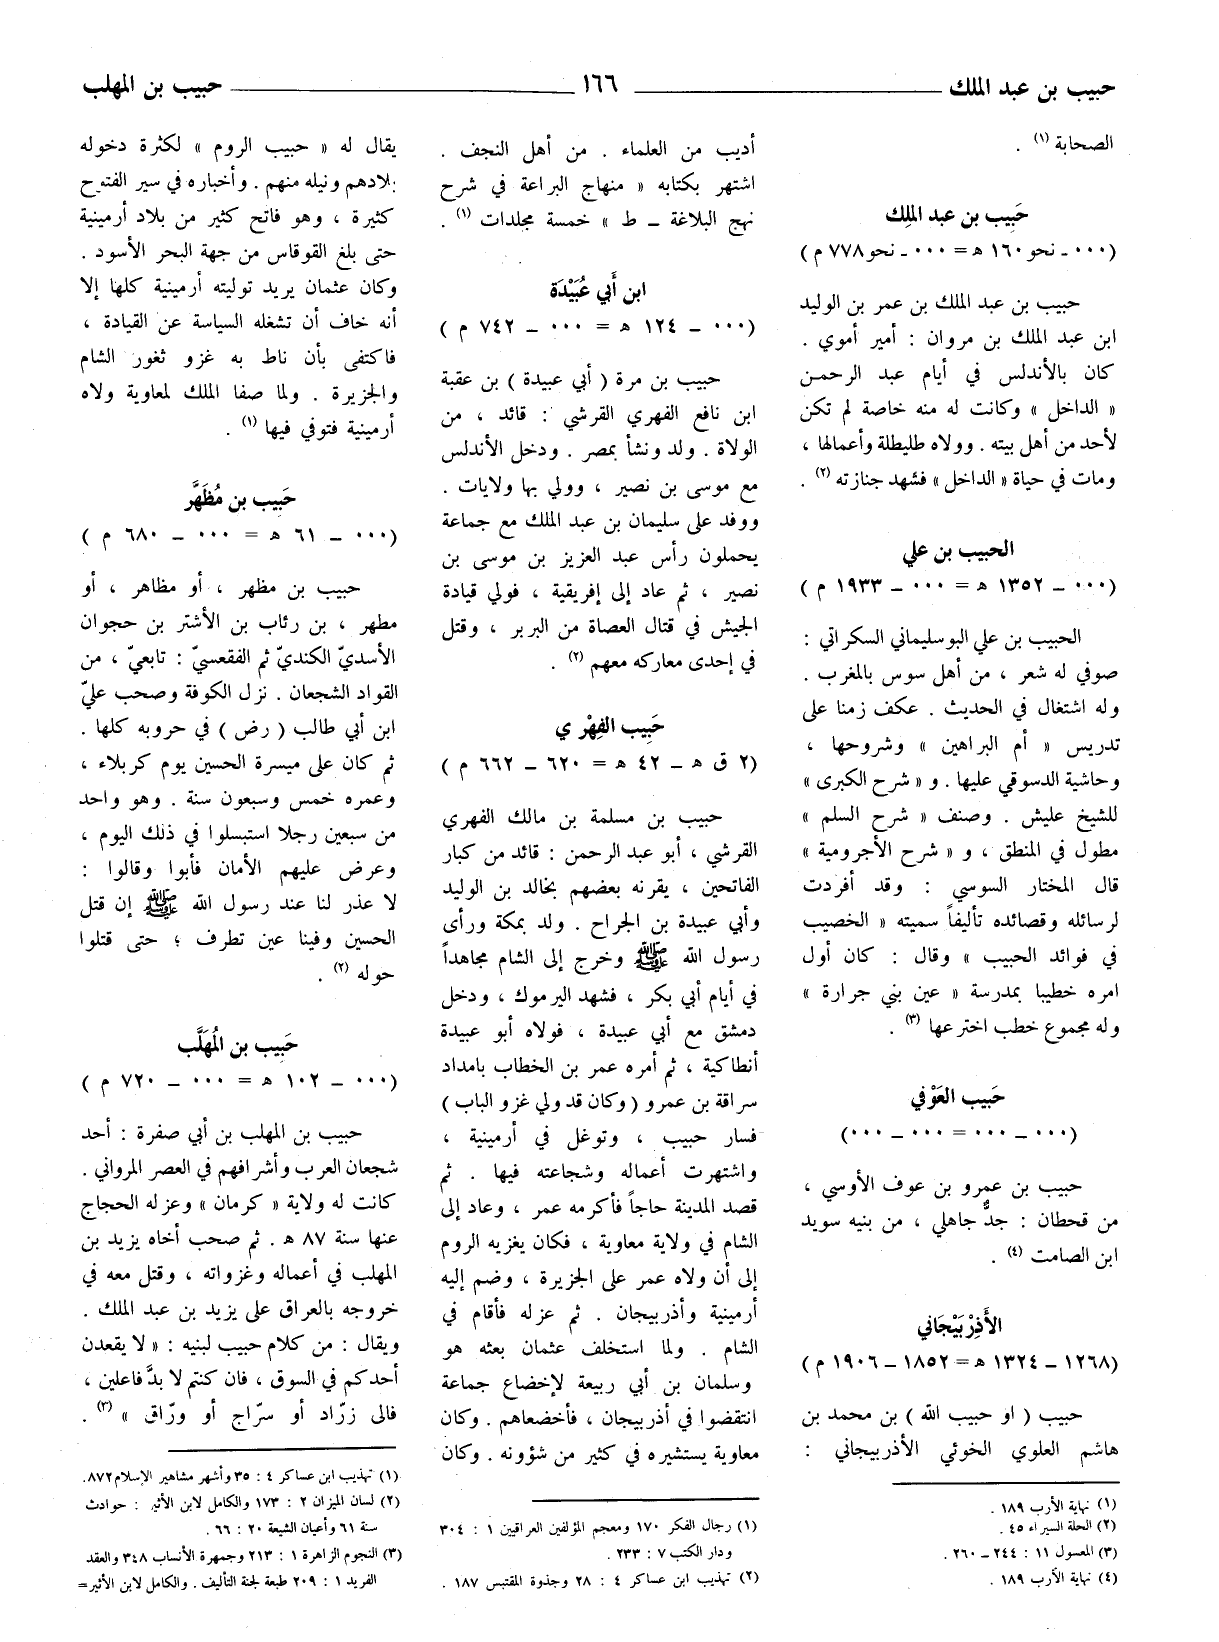 حبيب بن عبد الملك
١٦٦
حبيب بن المهلب
الصحابة (١) .
حَبِيب بن عبد المَلِك
(٠٠٠ ـ نحو ١٦٠ ه = ٠٠٠ ـ نحو ٧٧٨ م)
حبيب بن عبد الملك بن عمر بن الوليد
ابن عبد الملك بن مروان : أمير أموي .
كان بالأندلس في أيام عبد الرحمن
« الداخل » وكانت له منه خاصة لم تكن
لأحد من أهل بيته . وولاه طليطلة وأعمالها ،
ومات في حياة « الداخل » فشهد جنازته (٢) .
الحبيب بن علي
(٠٠٠ ـ ١٣٥٢ ه = ٠٠٠ ـ ١٩٣٣ م)
الحبيب بن علي البوسليماني السكراتي :
صوفي له شعر ، من أهل سوس بالمغرب .
وله اشتغال في الحديث . عكف زمنا على
تدريس « أم البراهين » وشروحها ،
وحاشية الدسوقي عليها . و « شرح الكبرى »
للشيخ عليش . وصنف « شرح السلم »
مطول في المنطق ، و « شرح الأجرومية »
قال المختار السوسي : وقد أفردت
لرسائله وقصائده تأليفاً سميته « الخصيب
في فوائد الحبيب » وقال : كان أول
امره خطيبا بمدرسة « عين بني جرارة »
وله مجموع خطب اخترعها (٣) .
حَبيب العَوْفي
(٠٠٠ ـ ٠٠٠ = ٠٠٠ ـ ٠٠٠)
حبيب بن عمرو بن عوف الأوسي ،
من قحطان : جدٌّ جاهلي ، من بنيه سويد
ابن الصامت (٤) .
الأَذِرْبَيْجَاني
(١٢٦٨ ـ ١٣٢٤ ه = ١٨٥٢ ـ ١٩٠٦ م)
حبيب ( او حبيب الله ) بن محمد بن
هاشم العلوي الخوئي الأذربيجاني :
(١) نهاية الأرب ١٨٩ .
(٢) الحلة السيراء ٤٥ .
(٣) المعسول ١١ : ٢٤٤ ـ ٢٦٠ .
(٤) نهاية الأرب ١٨٩ .
أديب من العلماء . من أهل النجف .
اشتهر بكتابه « منهاج البراعة في شرح
نهج البلاغة ـ ط » خمسة مجلدات (١) .
ابن أَبي عُبَيْدَة
(٠٠٠ ـ ١٢٤ ه = ٠٠٠ ـ ٧٤٢ م )
حبيب بن مرة ( أبي عبيدة ) بن عقبة
ابن نافع الفهري القرشي : قائد ، من
الولاة . ولد ونشأ بمصر . ودخل الأندلس
مع موسى بن نصير ، وولي بها ولايات .
ووفد على سليمان بن عبد الملك مع جماعة
يحملون رأس عبد العزيز بن موسى بن
نصير ، ثم عاد إلى إفريقية ، فولي قيادة
الجيش في قتال العصاة من البربر ، وقتل
في إحدى معاركه معهم (٢) .
حَبِيب الفِهْرِي
(٢ ق ه ـ ٤٢ ه = ٦٢٠ ـ ٦٦٢ م )
حبيب بن مسلمة بن مالك الفهري
القرشي ، أبو عبد الرحمن : قائد من كبار
الفاتحين ، يقرنه بعضهم بخالد بن الوليد
وأبي عبيدة بن الجراح . ولد بمكة ورأى
رسول الله ﷺ وخرج إلى الشام مجاهداً
في أيام أبي بكر ، فشهد اليرموك ، ودخل
دمشق مع أبي عبيدة ، فولاه أبو عبيدة
أنطاكية ، ثم أمره عمر بن الخطاب بامداد
سراقة بن عمرو (وكان قد ولي غزو الباب)
فسار حبيب ، وتوغل في أرمينية ،
واشتهرت أعماله وشجاعته فيها . ثم
قصد المدينة حاجاً فأكرمه عمر ، وعاد إلى
الشام في ولاية معاوية ، فكان يغزيه الروم
إلى أن ولاه عمر على الجزيرة ، وضم إليه
أرمينية وأذربيجان . ثم عزله فأقام في
الشام . ولما استخلف عثمان بعثه هو
وسلمان بن أبي ربيعة لإخضاع جماعة
انتقضوا في أذربيجان ، فأخضعاهم . وكان
معاوية يستشيره في كثير من شؤونه . وكان
(١) رجال الفكر ١٧٠ ومعجم المؤلفين العراقيين ١ : ٣٠٤
ودار الكتب ٧ : ٢٣٣ .
(٢) تهذيب ابن عساكر ٤ : ٢٨ وجذوة المقتبس ١٨٧ .
يقال له « حبيب الروم » لكثرة دخوله
بلادهم ونيله منهم . وأخباره في سير الفتح
كثيرة ، وهو فاتح كثير من بلاد أرمينية
حتى بلغ القوقاس من جهة البحر الأسود .
وكان عثمان يريد توليته أرمينية كلها إلا
أنه خاف أن تشغله السياسة عن القيادة ،
فاكتفى بأن ناط به غزو ثغور الشام
والجزيرة . ولما صفا الملك لمعاوية ولاه
أرمينية فتوفي فيها (١) .
حَبِيب بن مُظَهَّر
(٠٠٠ ـ ٦١ ه = ٠٠٠ ـ ٦٨٠ م )
حبيب بن مظهر ، أو مظاهر ، أو
مطهر ، بن رئاب بن الأشتر بن حجوان
الأسديّ الكنديّ ثم الفقعسيّ : تابعيّ ، من
القواد الشجعان . نزل الكوفة وصحب عليّ
ابن أبي طالب ( رض ) في حروبه كلها .
ثم كان على ميسرة الحسين يوم كربلاء ،
وعمره خمس وسبعون سنة . وهو واحد
من سبعين رجلا استبسلوا في ذلك اليوم ،
وعرض عليهم الأمان فأبوا وقالوا :
لا عذر لنا عند رسول الله ﷺ إن قتل
الحسين وفينا عين تطرف ؛ حتى قتلوا
حوله (٢) .
حَبِيب بن المُهَلَّب
(٠٠٠ ـ ١٠٢ ه = ٠٠٠ ـ ٧٢٠ م )
حبيب بن المهلب بن أبي صفرة : أحد
شجعان العرب وأشرافهم في العصر المرواني .
كانت له ولاية « كرمان » وعزله الحجاج
عنها سنة ٨٧ ه . ثم صحب أخاه يزيد بن
المهلب في أعماله وغزواته ، وقتل معه في
خروجه بالعراق على يزيد بن عبد الملك .
ويقال : من كلام حبيب لبنيه : « لا يقعدن
أحدكم في السوق ، فان كنتم لا بدَّ فاعلين ،
فالى زرّاد أو سرّاج أو ورّاق » (٣) .
(١) تهذيب ابن عساكر ٤ : ٣٥ وأشهر مشاهير الإسلام ٨٧٢.
(٢) لسان الميزان ٢ : ١٧٣ والكامل لابن الأثير : حوادث
سنة ٦١ وأعيان الشيعة ٢٠ : ٦٦ .
(٣) النجوم الزاهرة ١ : ٢١٣ وجمهرة الأنساب ٣٤٨ والعقد
الفريد ١ : ٢٠٩ طبعة لجنة التأليف . والكامل لابن الأثير=